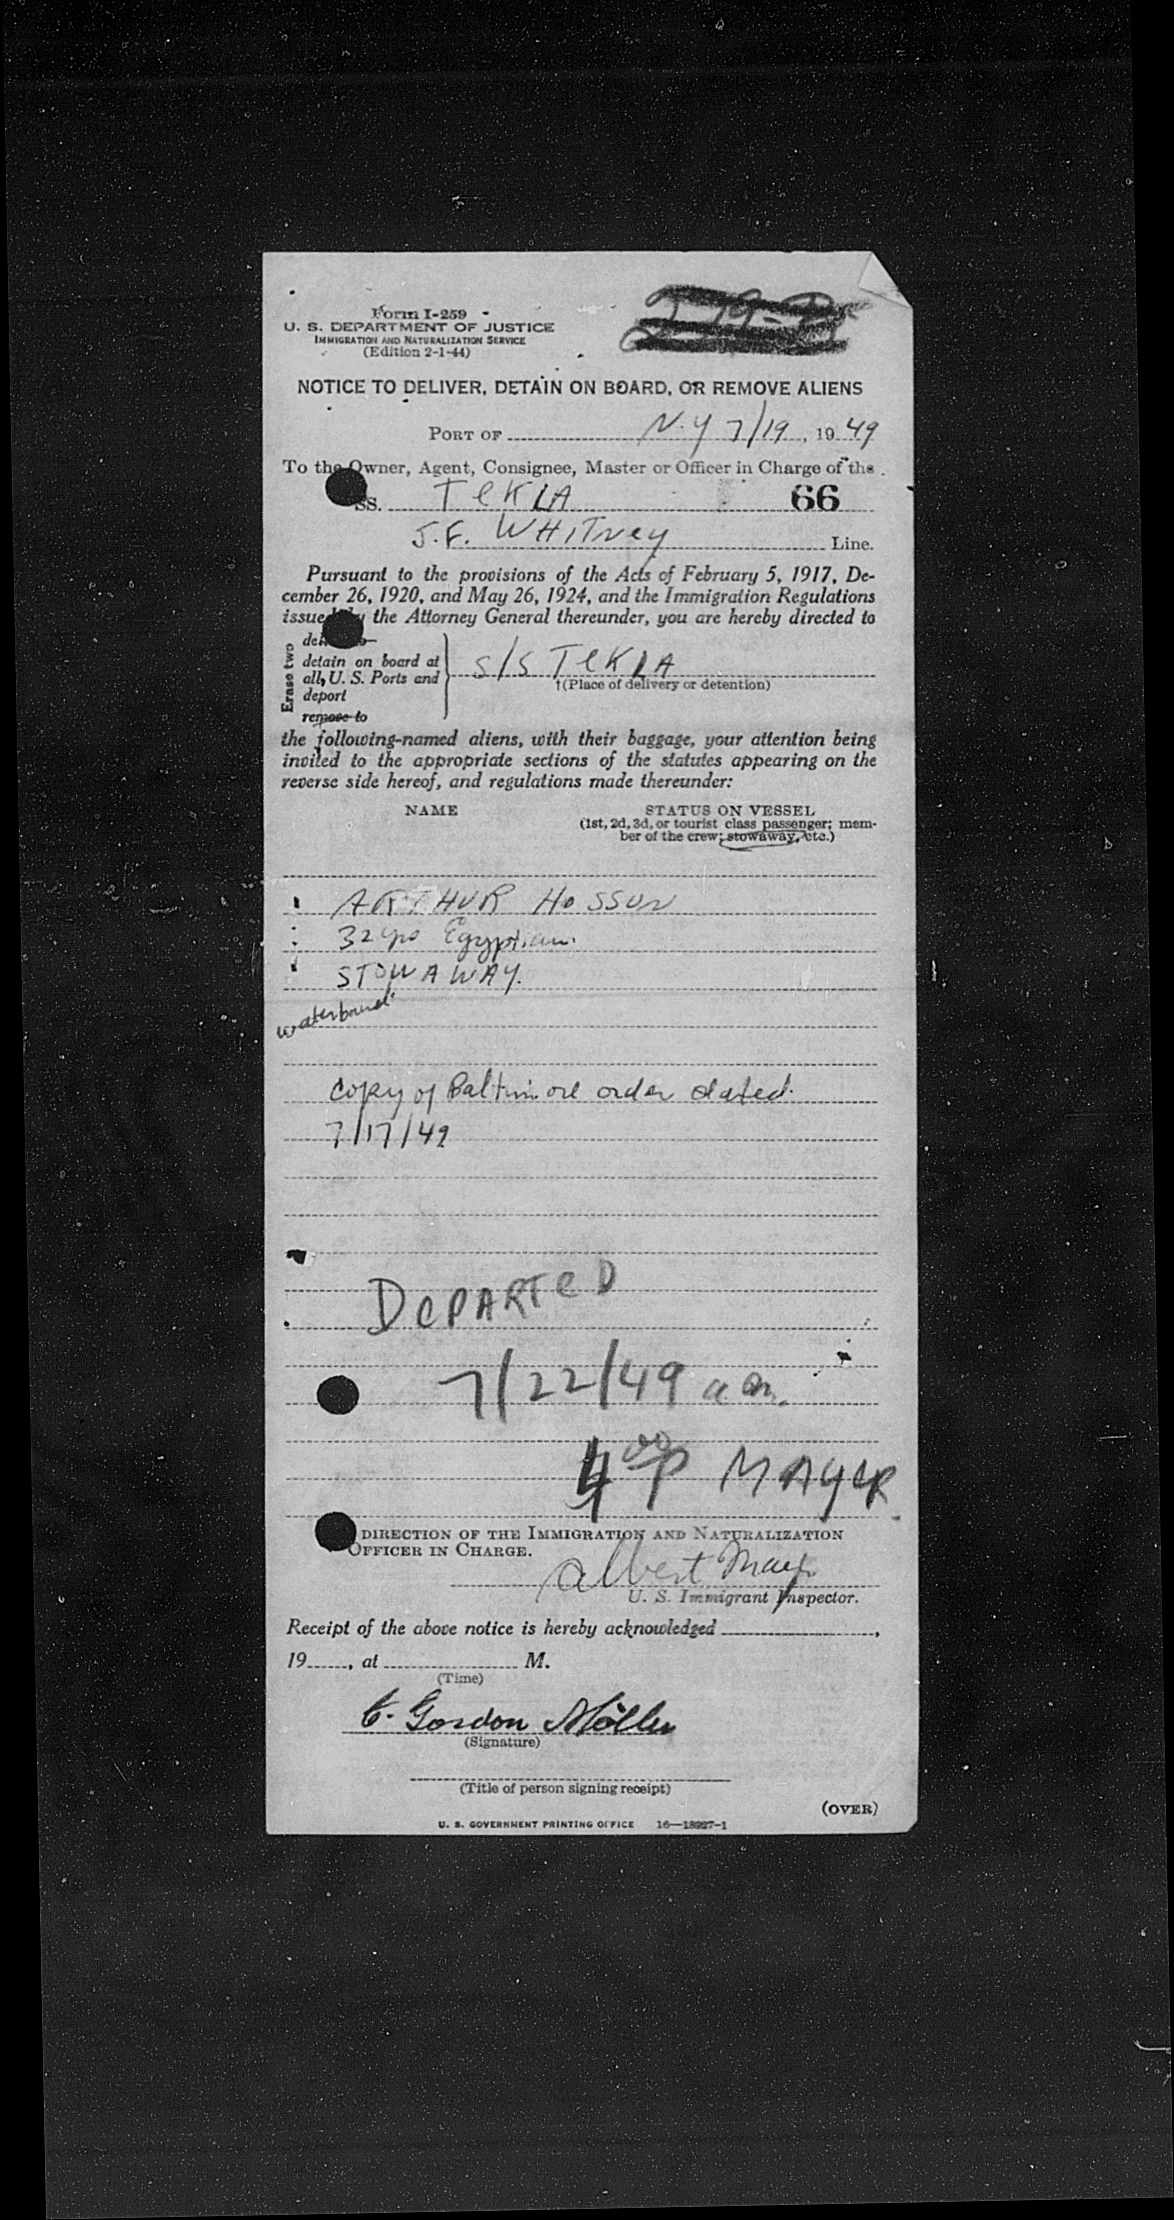 Form I-259
U. S. DEPARTMENT OF JUSTICE
IMMIGRATION AND NATURALIZATION SERVICE
(Edition 2-1-44)
NOTICE TO DELIVER, DETAIN ON BOARD, OR REMOVE ALIENS
PORT OF N.Y 7/19, 19 49
To the Owner, Agent, Consignee, Master or Officer in Charge of the
SS. TEKLA 66
J.F. WHITNEY Line.
Pursuant to the provisions of the Acts of February 5, 1917, De-
cember 26, 1920, and May 26, 1924, and the Immigration Regulations
issued by the Attorney General thereunder, you are hereby directed to
Erase two
detain on board at
all, U. S. Ports and
deport
remove to
S/S TEKLA
†(Place of delivery or detention)
the following-named aliens, with their baggage, your attention being
invited to the appropriate sections of the statutes appearing on the
reverse side hereof, and regulations made thereunder:
NAME STATUS ON VESSEL
(1st, 2d, 3d, or tourist class passenger; mem-
ber of the crew; stowaway, etc.)
ARTHUR HOSSON
32 yrs Egyptian.
STOWAWAY.
copy of Baltimore order dated
7/17/49
DEPARTED
7/22/49 a.m.
4 00 P MAYER
DIRECTION OF THE IMMIGRATION AND NATURALIZATION
OFFICER IN CHARGE.
Albert Mayer
U. S. Immigrant Inspector.
Receipt of the above notice is hereby acknowledged ,
19 , at M.
(Time)
C. Gordon Möller
(Signature)
(Title of person signing receipt)
(OVER)
U. S. GOVERNMENT PRINTING OFFICE 16—18927-1